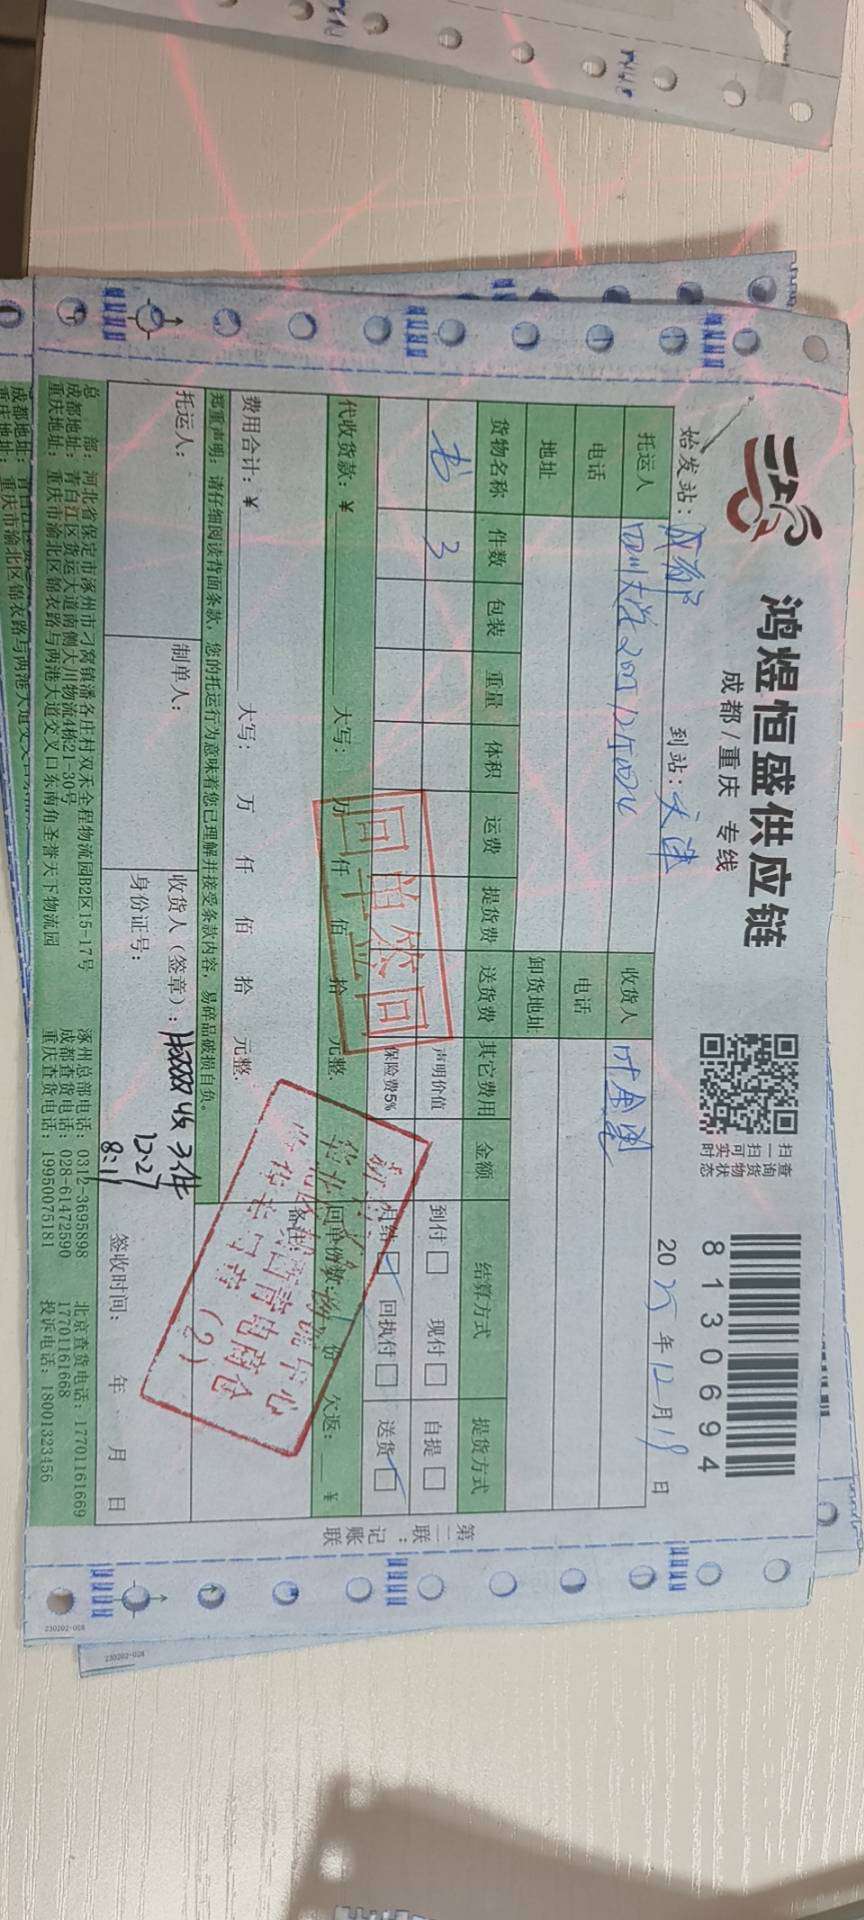 鸿煜恒盛供应链
成都/重庆 专线
扫查
一询
扫货
可物
实状
时态
8130694
始发站：成都
到站：天津
2025年12月19日
托运人
收货人
电话
电话
地址
卸货地址
货物名称 件数 包装 重量 体积 运费 提货费 送货费 其它费用 金额 结算方式 提货方式
书 3
声明价值
到付 现付 自提
保险费5%
月结 回执付 送货
代收货款：￥
大写： 万 仟 佰 拾 元整.
回单份数： 份 欠返： ￥
费用合计：￥
大写： 万 仟 佰 拾 元整.
备注：
郑重声明：请仔细阅读背面条款，您的托运行为意味着您已理解并接受条款内容，易碎品破损自负。
托运人：
制单人：
收货人（签章）：
收3件
12.27
身份证号：
8:11
签收时间： 年 月 日
回单签回
(2)
第二联：记账联
总 部：河北省保定市涿州市刁窝镇潘各庄村双禾全程物流园B2区15-17号
涿州总部电话：0312-3695898
北京查货电话：17701161669
成都地址：青白江区货运大道南侧大川物流4栋21-30号
成都查货电话：028-61472590
17701161668
重庆地址：重庆市渝北区锦衣路与两港大道交叉口东南角圣誉天下物流园
重庆查货电话：19950075181
投诉电话：18001323456
成都地址：青白江区
重庆地址：重庆市渝北区锦衣路与两港大道交叉口东南
230202-008
230202-028